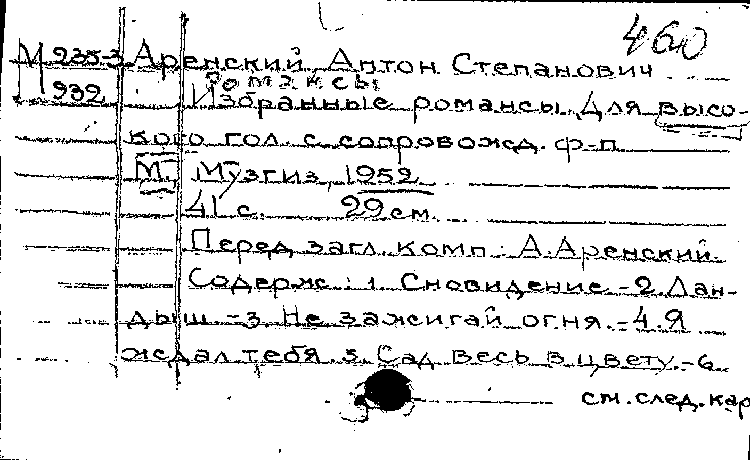 460
М 235-3 Аренский, Антон Степанович
Романсы
932 Избранные романсы. Для высо-
кого гол. с сопровожд. ф-п.
М., Музгиз, 1952
41 с. 29 см.
Перед загл. комп.: А. Аренский.
Содерж.: 1. Сновидение.-2. Лан-
дыш.-3. Не зажигай огня.-4. Я
ждал тебя. 5. Сад весь в цвету.-6
см. след. кар